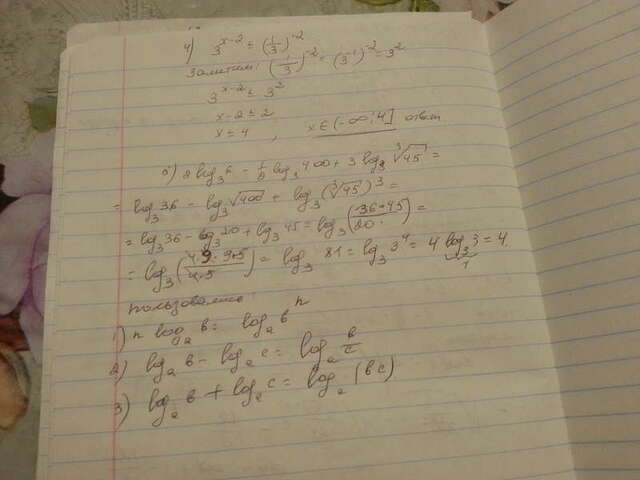 4) 3^{x-2} ≤ (1/3)^{-2}
Заметим: (1/3)^{-2} = (3^{-1})^{-2} = 3^2
3^{x-2} ≤ 3^2
x-2 ≤ 2
x ≤ 4 , x∈(-∞;4] ответ
5) 2 log_3 6 - 1/2 log_3 400 + 3 log_3 ∛45 =
= log_3 36 - log_3 √400 + log_3 (∛45)^3 =
= log_3 36 - log_3 20 + log_3 45 = log_3 (36·45/20) =
= log_3 (4·9·9·5/4·5) = log_3 81 = log_3 3^4 = 4 log_3 3 = 4.
1
Пользовались:
1) n log_a b = log_a b^n
2) log_a b - log_a c = log_a b/c
3) log_a b + log_a c = log_a (bc)